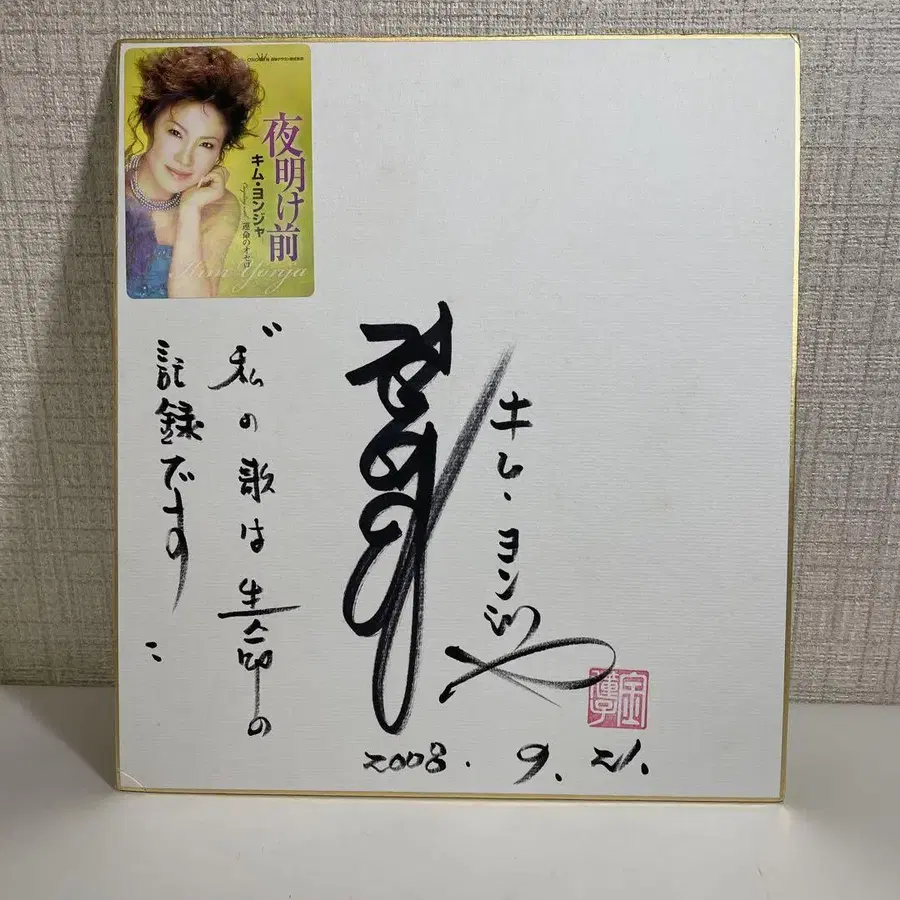 夜明け前
キム・ヨンジャ
運命のオセロ
Kim Yonja
キム・ヨンジャ
"私の歌は生命の
記録です
2008.9.21.